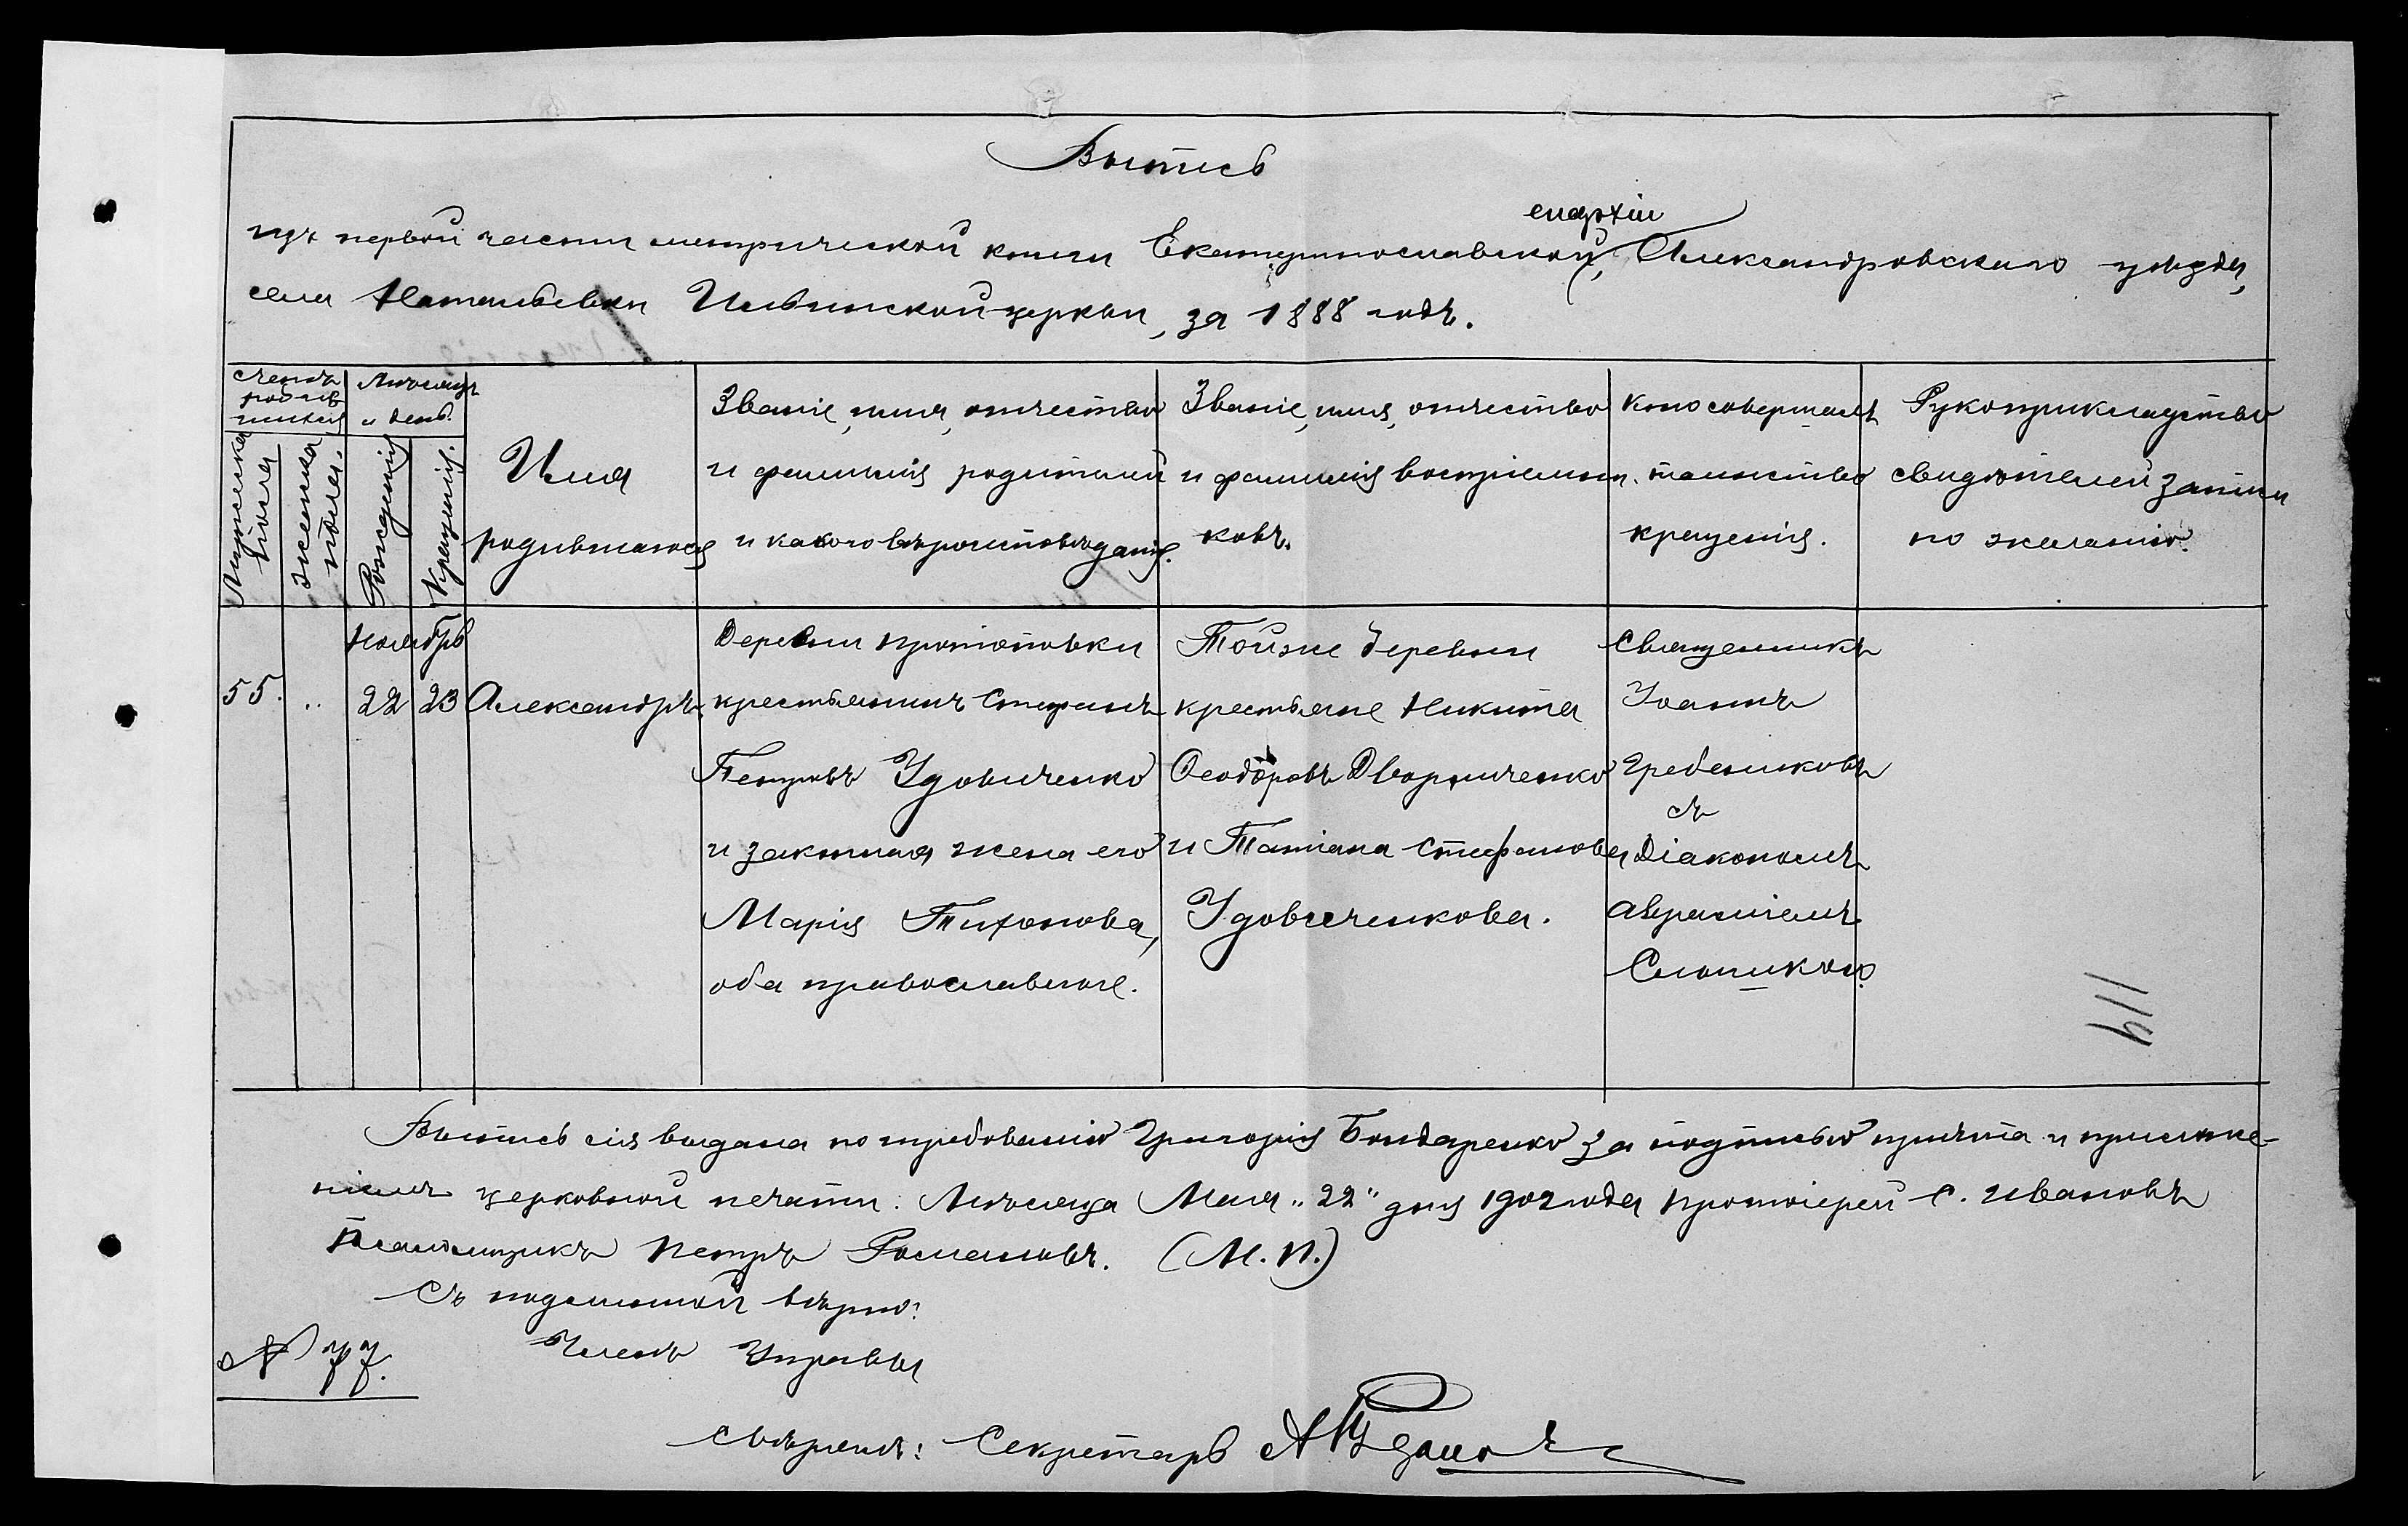 Выпись
епархіи
изъ первой части метрической книги Екатеринославской, Александровскаго уѣзда,
села Натальевки Ильинской церкви, за 1888 годъ.
Счетъ родившихся
Мужеска пола
Женска пола.
Мѣсяцъ и день.
Рожденія
Крещенія.
Имя
родившагося
Званіе, имя, отчество
и фамилія родителей
и какого вѣроисповѣданія.
Званіе, имя, отчество
и фамилія воспріемни-
ковъ.
Кто совершалъ
таинство
крещенія.
Рукоприкладство
свидѣтелей записи
по желанію.
Ноябрь
55. .. 22 23 Александръ.
Деревни
крестьянинъ Стефанъ
Петровъ Удовиченко
и законная жена его
Марія Тихонова,
оба православные.
Тойже деревни
крестьяне Никита
Ѳеодоровъ Дворниченко
и Татіана Стефанова
Удовиченкова.
Священникъ
Іоаннъ
Гребенниковъ
съ
Діакономъ
Авраміемъ
119
Выпись сія выдана по требованію Григорія Бондаренко за подписью причта и приложе-
ніемъ церковной печати. Мѣсяца Мая "22" дня 1902 года Протоіерей С. Ивановъ
Псаломщикъ Петръ Романовъ. (М. П.)
Съ подлинной вѣрно:
№ 77.
Членъ Управы
Свѣрялъ: Секретарь